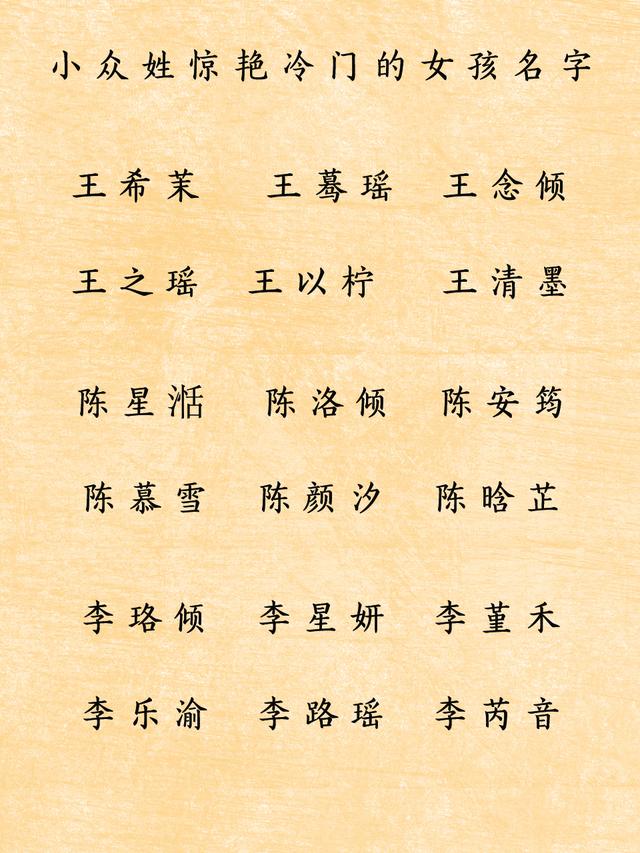 小众姓惊艳冷门的女孩名字
王希茉 王蓦瑶 王念倾
王之瑶 王以柠 王清墨
陈星湉 陈洛倾 陈安筠
陈慕雪 陈颜汐 陈晗芷
李珞倾 李星妍 李堇禾
李乐渝 李路瑶 李芮音